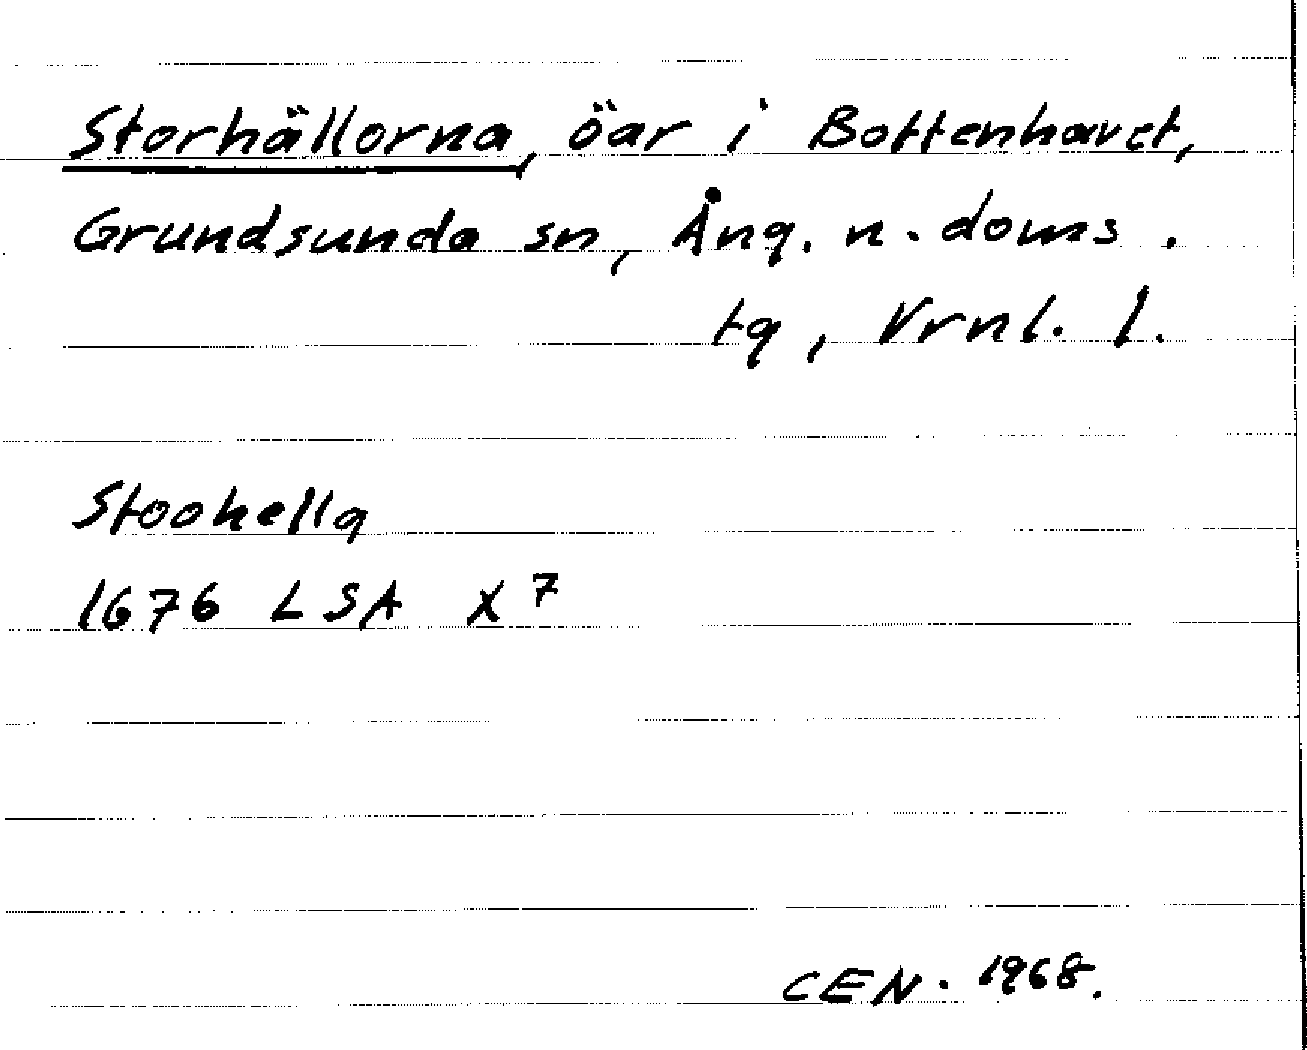 Storhällorna, öar i Bottenhavet,
Grundsunda sn, Ång. n. doms.
tg, Vrnl. l.
Stoohella
1676 LSA X 7
CEN. 1968.